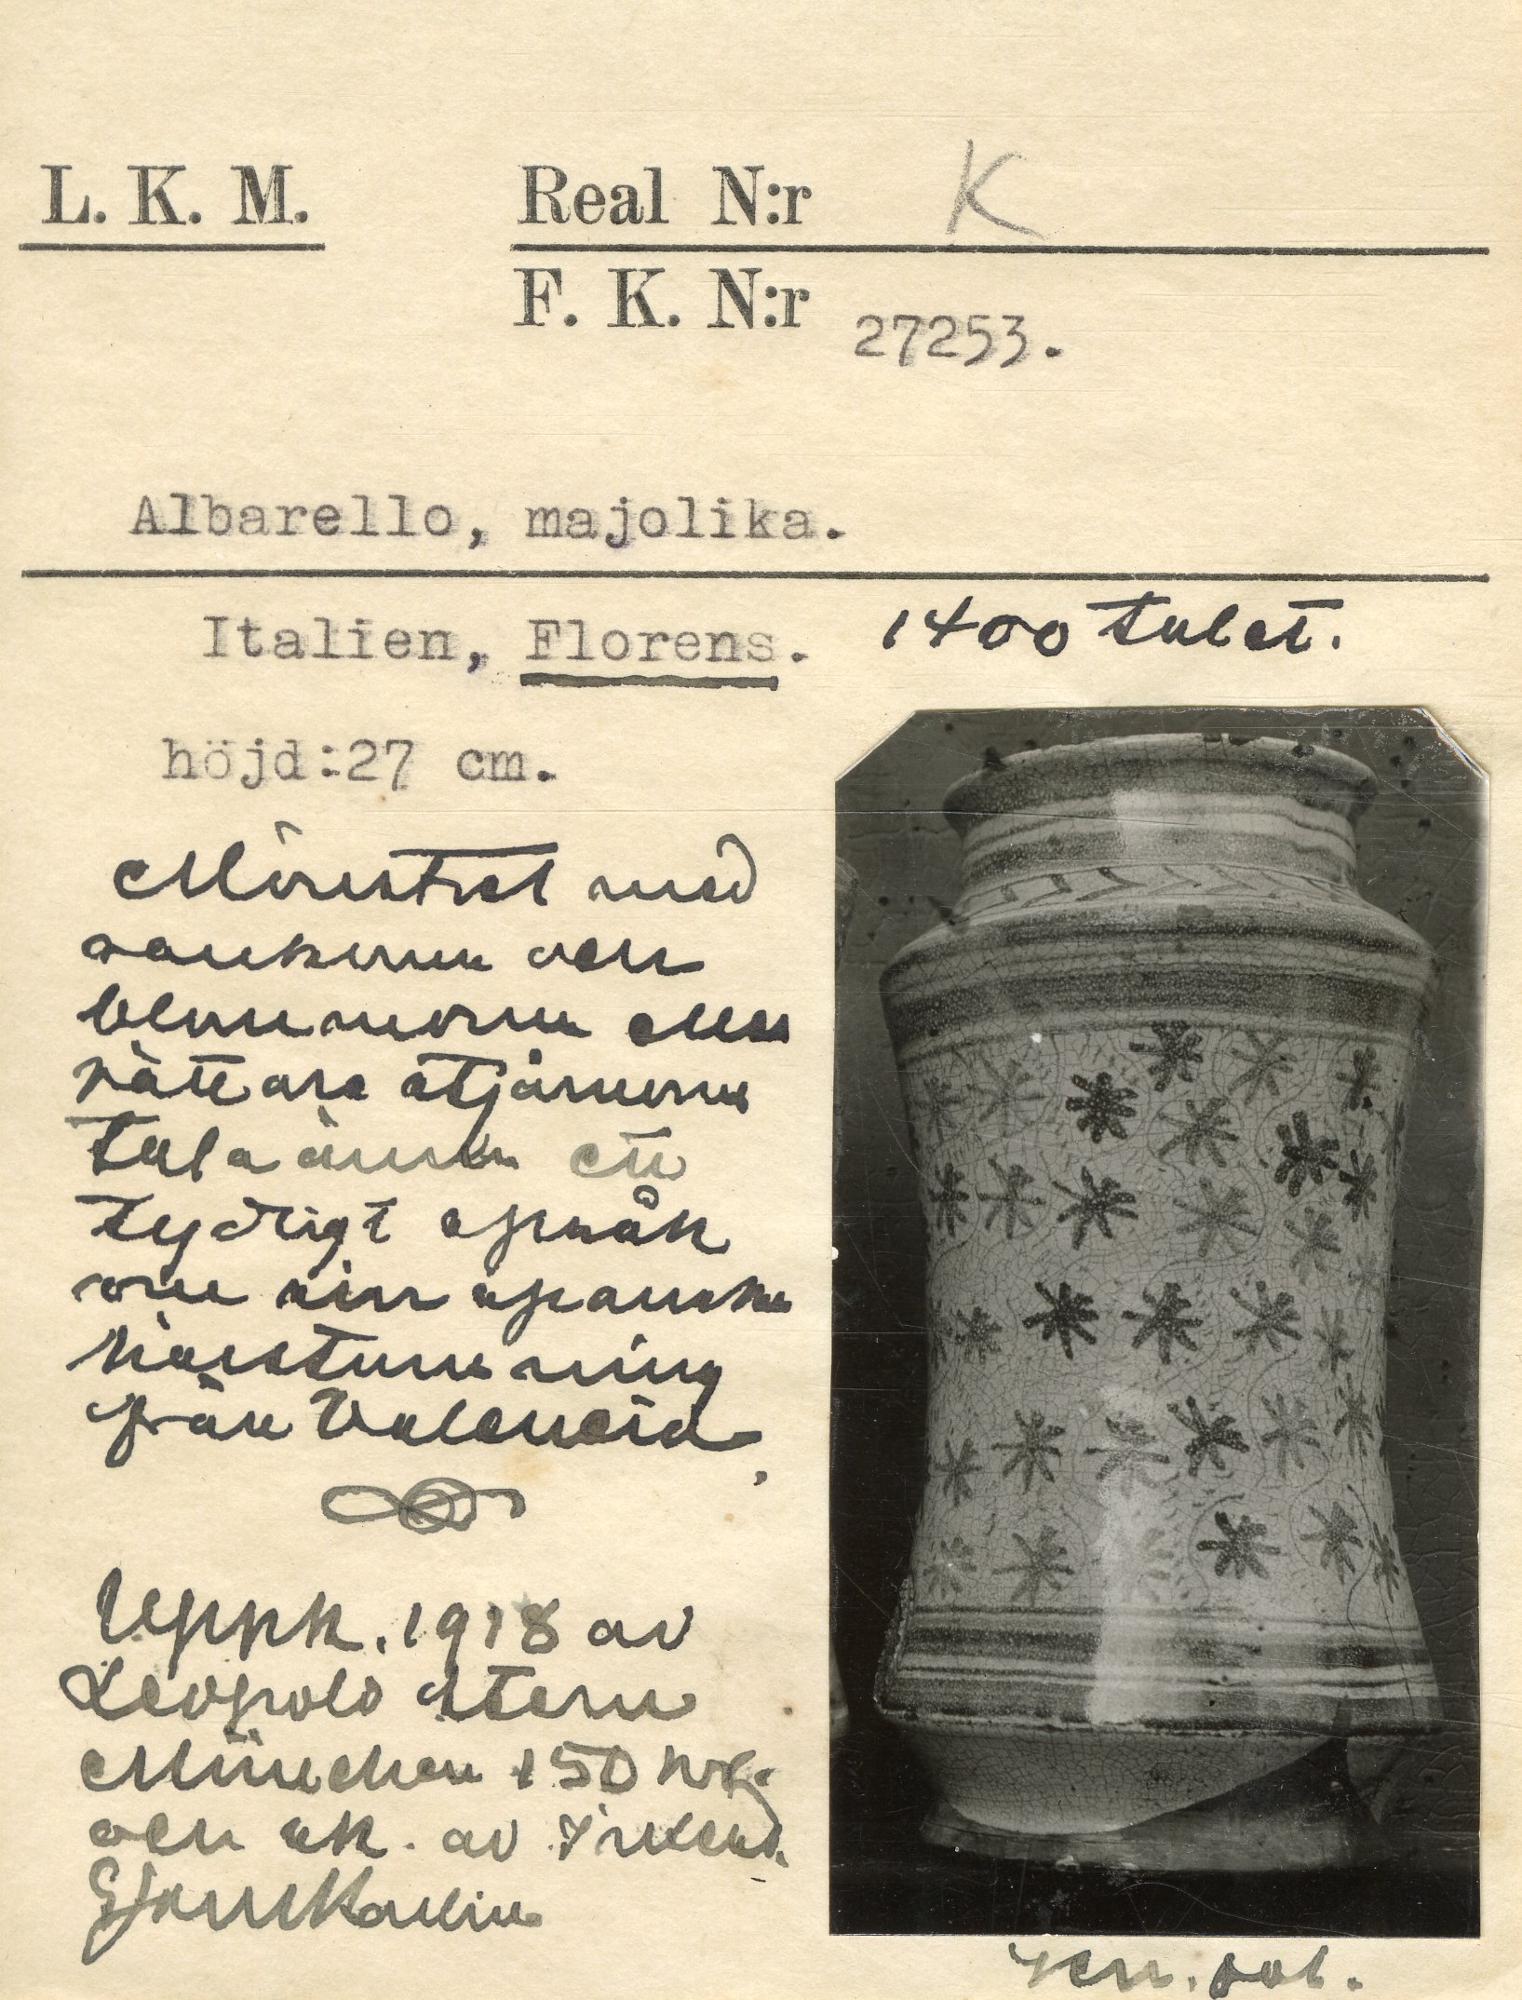 L. K. M.
Real N:r K
F. K. N:r 27253.
Albarello, majolika.
Italien, Florens. 1400 talet.
höjd:27 cm.
Mönstret med
rankorna och
blommorna eller
rättare stjärnorna
tala ännu ett
tydligt språk
om sin spanska
härstamning
från Valencia.
Uppk. 1918 av
Leopold Stern
München 150 Mk.
och sk. av